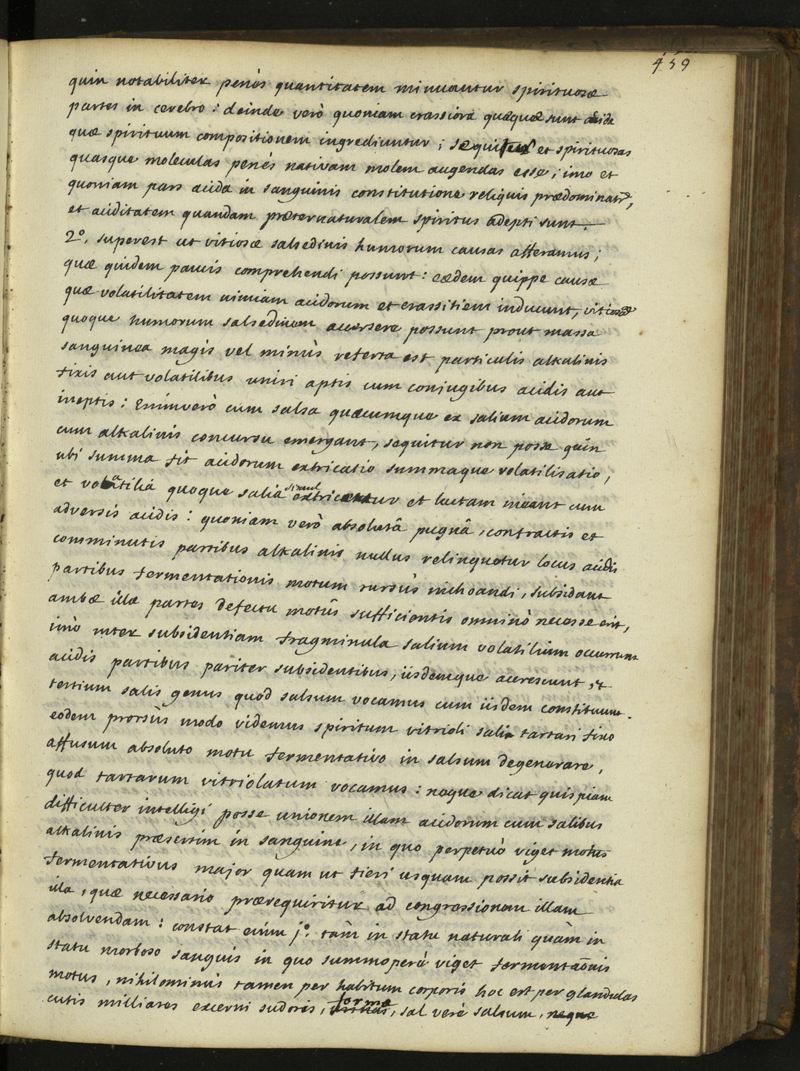 459
quin notabiliter penès quantitatem minuantur spirituosæ
partes in cerebro : deinde verò quoniam crassiora quæquæ sunt acida
quæ spirituum compositionem ingrediuntur ; sequitur et spirituosas
quasque moleculas penès nativam molem augendas esse ; imo et
quoniam pars acida in sanguinis constitutione reliquis prædominatur,
et aciditatem quandam præternaturalem spiritus adepti sunt.
2º. superest ut vitiosæ salsedinis humorum causas afferamus ;
quæ quidem paucis comprehendi possunt : eædem quippe causæ
quæ volatilitatem nimiam acidorum et crassitiem inducunt, vitiosã
quoque humorum salsedinem accersere possunt prout massa
sanguinea magis vel minùs referta est particulis alkalinis
fixis aut volatilibus uniri aptis cum conjugibus acidis aut
ineptis : Enimverò cum salsa quæcumque ex salium acidorum
cum alkalinis concursu emergant, sequitur non posse quin
ubi summa fit acidorum extricatio summaque volatilisatio,
et volatilia quoque salia simul extricentur et luctam ineant cum
adversis acidis : quoniam verò absolutâ pugnâ, contractis et
comminutis partibus alkalinis nudus relinquetur locus acidis
partibus fermentationis motum rursùs inchoandi, subsidant
ambæ illæ partes defectu motûs sufficientis omninò necesse erit,
imò inter subsidentiam fragminula salium volatilium occurrunt
acidis partibus pariter subsidentibus, iisdemque acerescunt, et
tertium salis genus quod salsum vocamus cum iisdem constituunt.
eodem prorsùs modo videmus spiritum vitrioli salis tartari fixo
affusum absoluto motu fermentativo in salsum degenerare,
quod tartarum vitriolatum vocamus : neque dicat quispiam
difficulter intelligi posse unionem illam acidorum cum salibus
alkalinis præsertim in sanguine, in quo perpetuò viget motus
fermentativus major quam ut fieri usquam possit subsidentia
illa, quæ necessario prærequiritur ad congressionem illam
absolvendam : constat enim 1º. tam in statu naturali quàm in
statu morboso sanguis in quo summoperè viget fermentaõnis
motus, nihilominùs tamen per habitum corporis hoc est per glandulas
cutis milliares excerni sudoris, formâ, sal verè salsum, neque